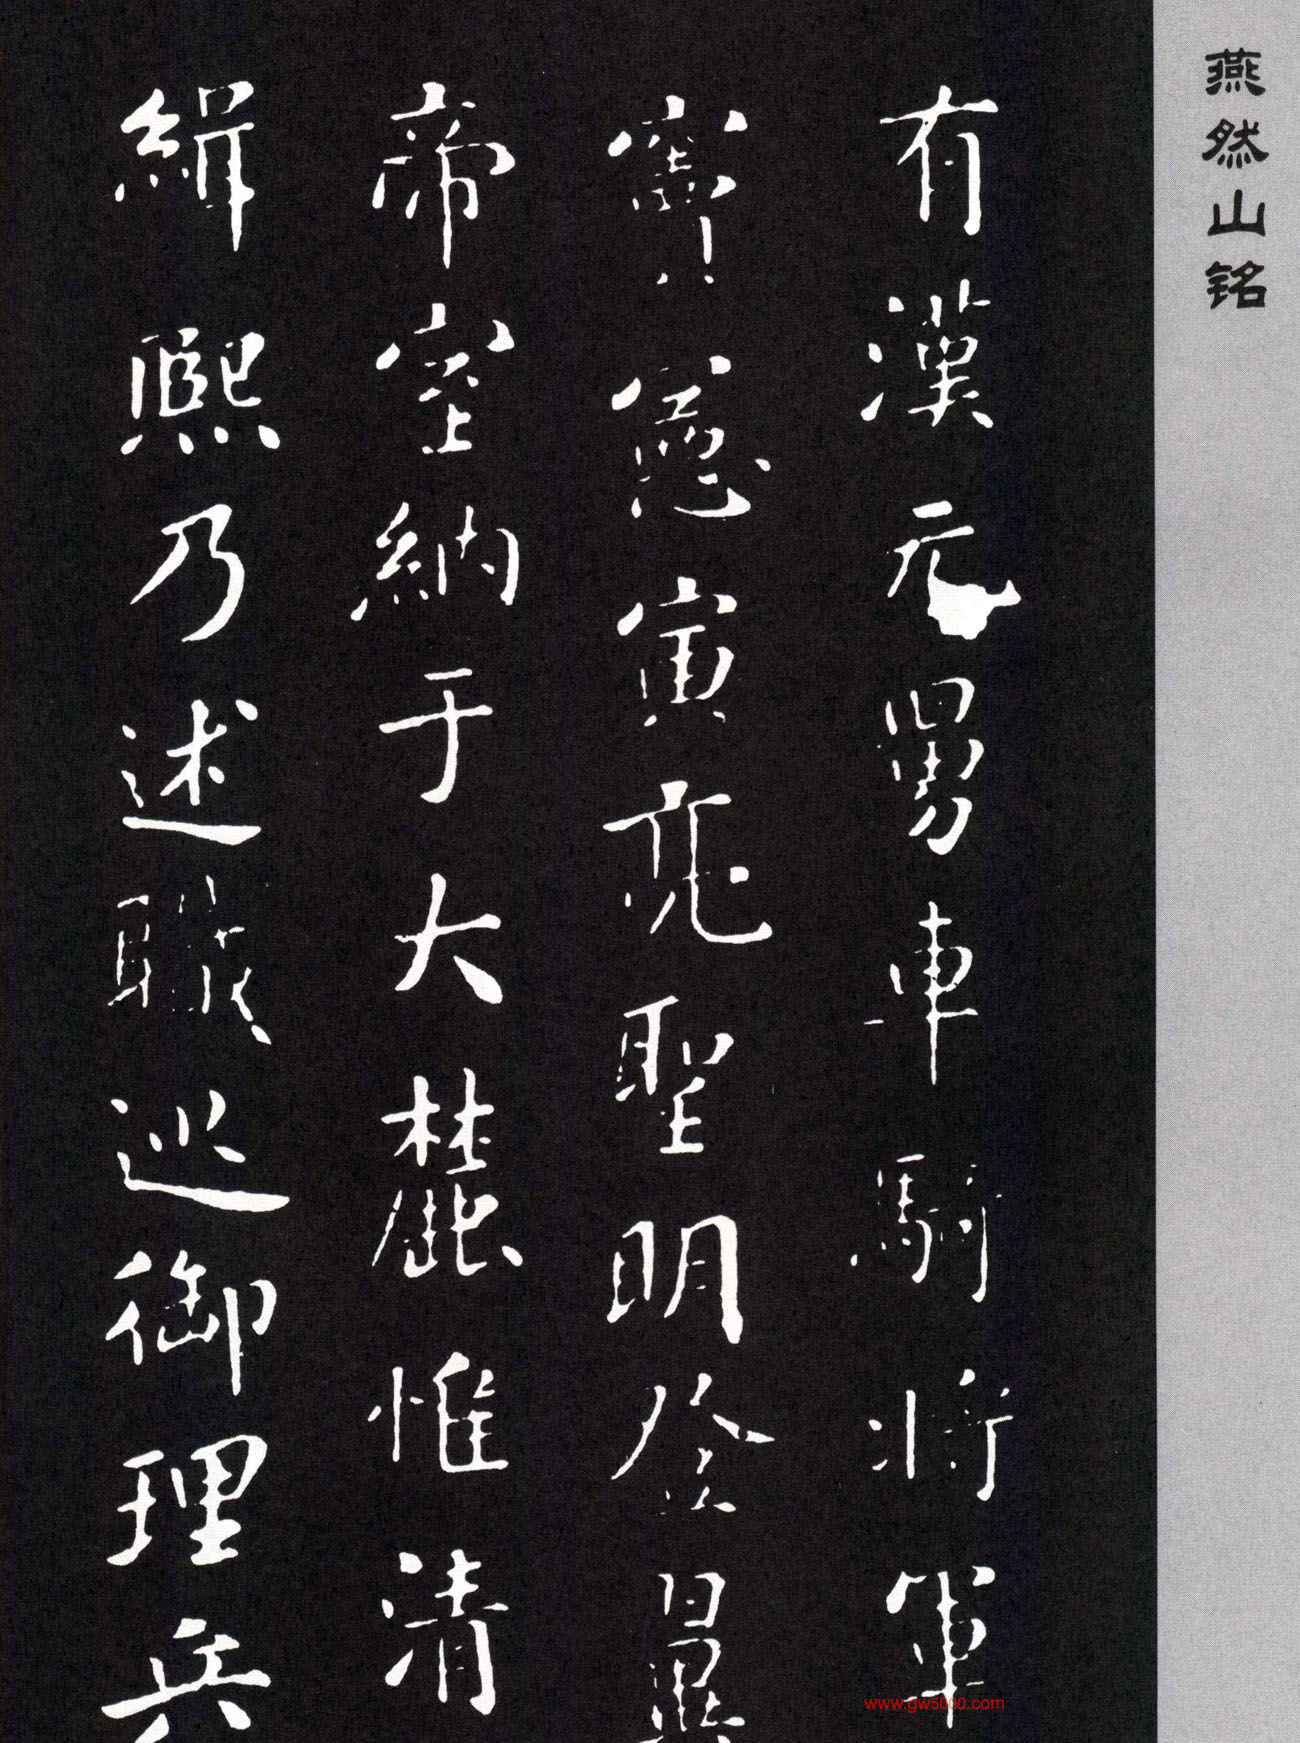 燕然山铭
有漢元舅車騎將軍
竇憲寅亮聖明登翼
帝室納于大麓惟清
緝熙乃述職巡御理兵
www.gw5000.com